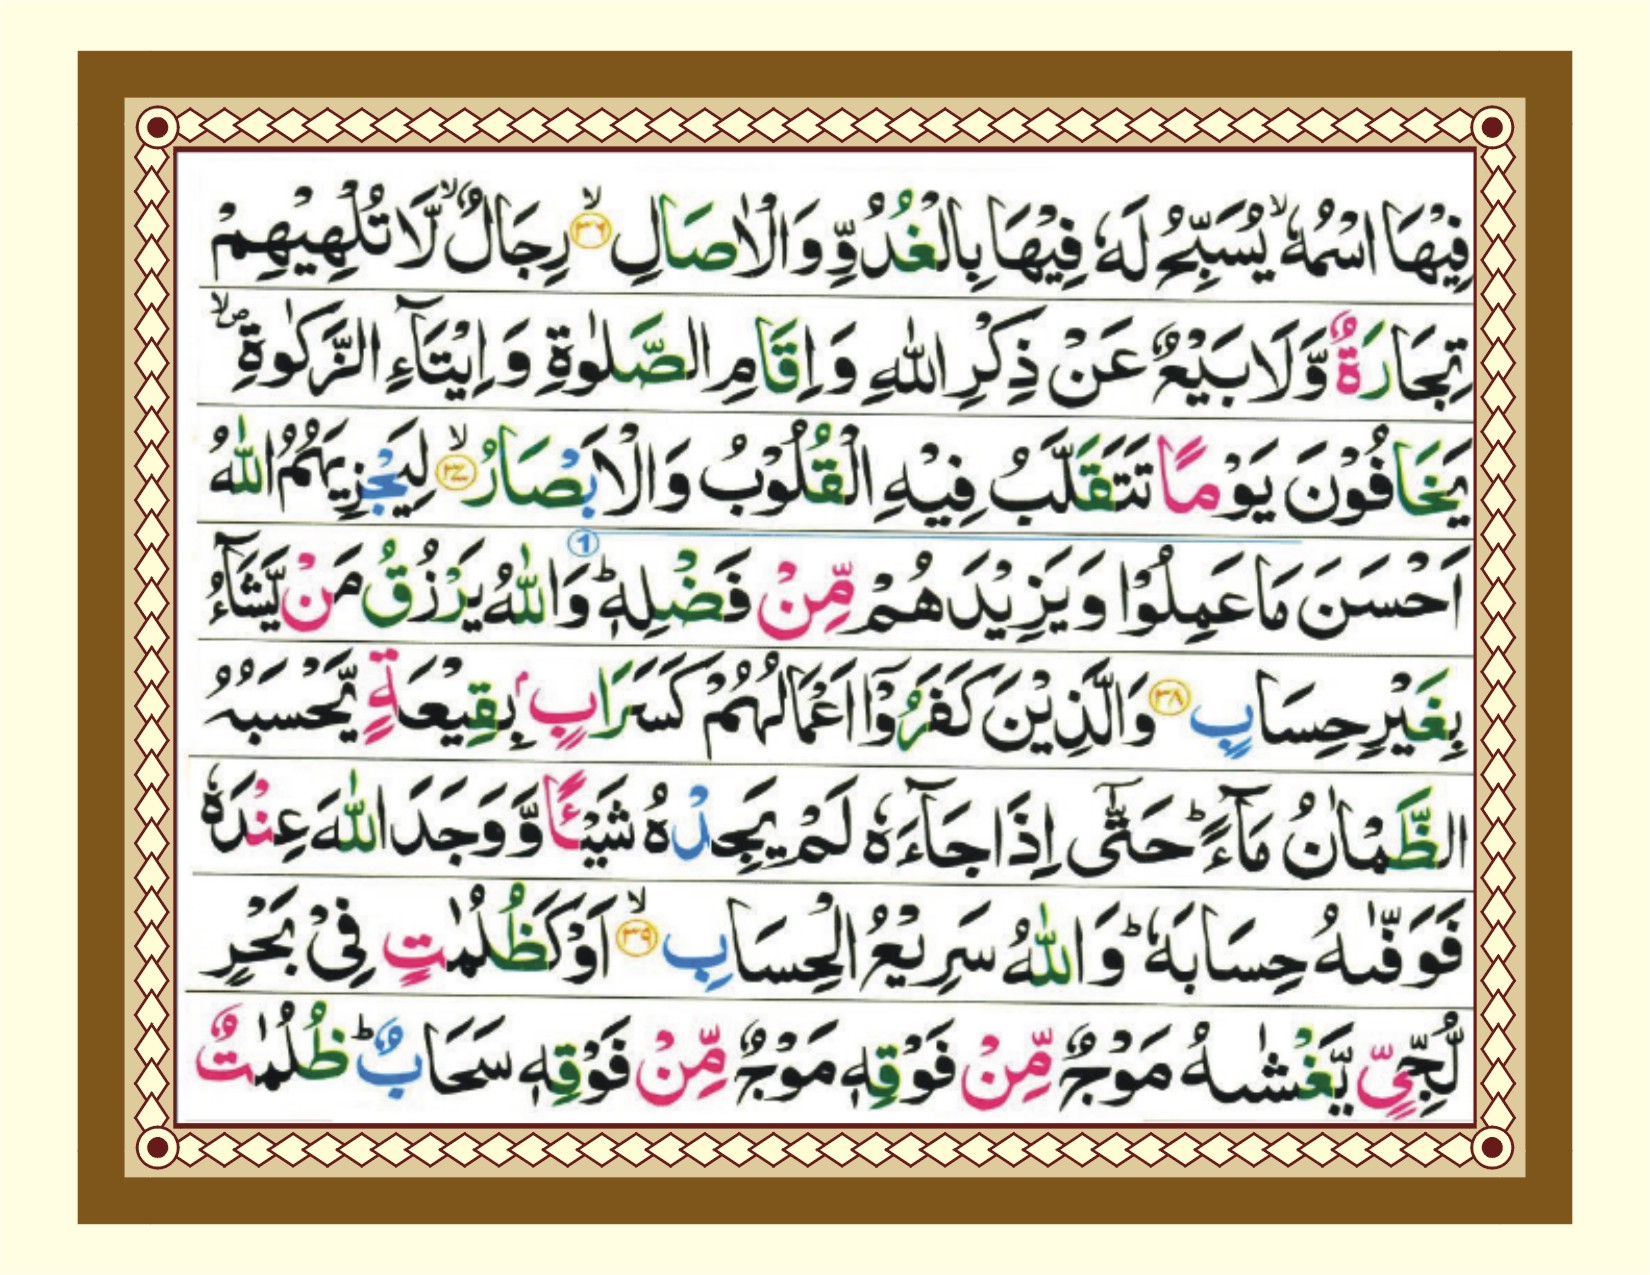 فِيْهَا اسْمُهٗ ۙ يُسَبِّحُ لَهٗ فِيْهَا بِالْغُدُوِّ وَالْاٰصَالِ ۙ﴿۳۶﴾ رِجَالٌ ۙ لَّا تُلْهِيْهِمْ
تِجَارَةٌ وَّلَا بَيْعٌ عَنْ ذِكْرِ اللّٰهِ وَاِقَامِ الصَّلٰوةِ وَاِيْتَآءِ الزَّكٰوةِ ۪ۙ
يَخَافُوْنَ يَوْمًا تَتَقَلَّبُ فِيْهِ الْقُلُوْبُ وَالْاَبْصَارُ ۙ﴿۳۷﴾ لِيَجْزِيَهُمُ اللّٰهُ
①
اَحْسَنَ مَا عَمِلُوْا وَيَزِيْدَهُمْ مِّنْ فَضْلِهٖ ؕ وَاللّٰهُ يَرْزُقُ مَنْ يَّشَآءُ
بِغَيْرِ حِسَابٍ ﴿۳۸﴾ وَالَّذِيْنَ كَفَرُوْٓا اَعْمَالُهُمْ كَسَرَابٍۭ بِقِيْعَةٍ يَّحْسَبُهُ
الظَّمْاٰنُ مَآءً ؕ حَتّٰٓى اِذَا جَآءَهٗ لَمْ يَجِدْهُ شَيْـًٔا وَّوَجَدَ اللّٰهَ عِنْدَهٗ
فَوَفّٰىهُ حِسَابَهٗ ؕ وَاللّٰهُ سَرِيْعُ الْحِسَابِ ۙ﴿۳۹﴾ اَوْ كَظُلُمٰتٍ فِيْ بَحْرٍ
لُّجِّيٍّ يَّغْشٰىهُ مَوْجٌ مِّنْ فَوْقِهٖ مَوْجٌ مِّنْ فَوْقِهٖ سَحَابٌ ؕ ظُلُمٰتٌۢ